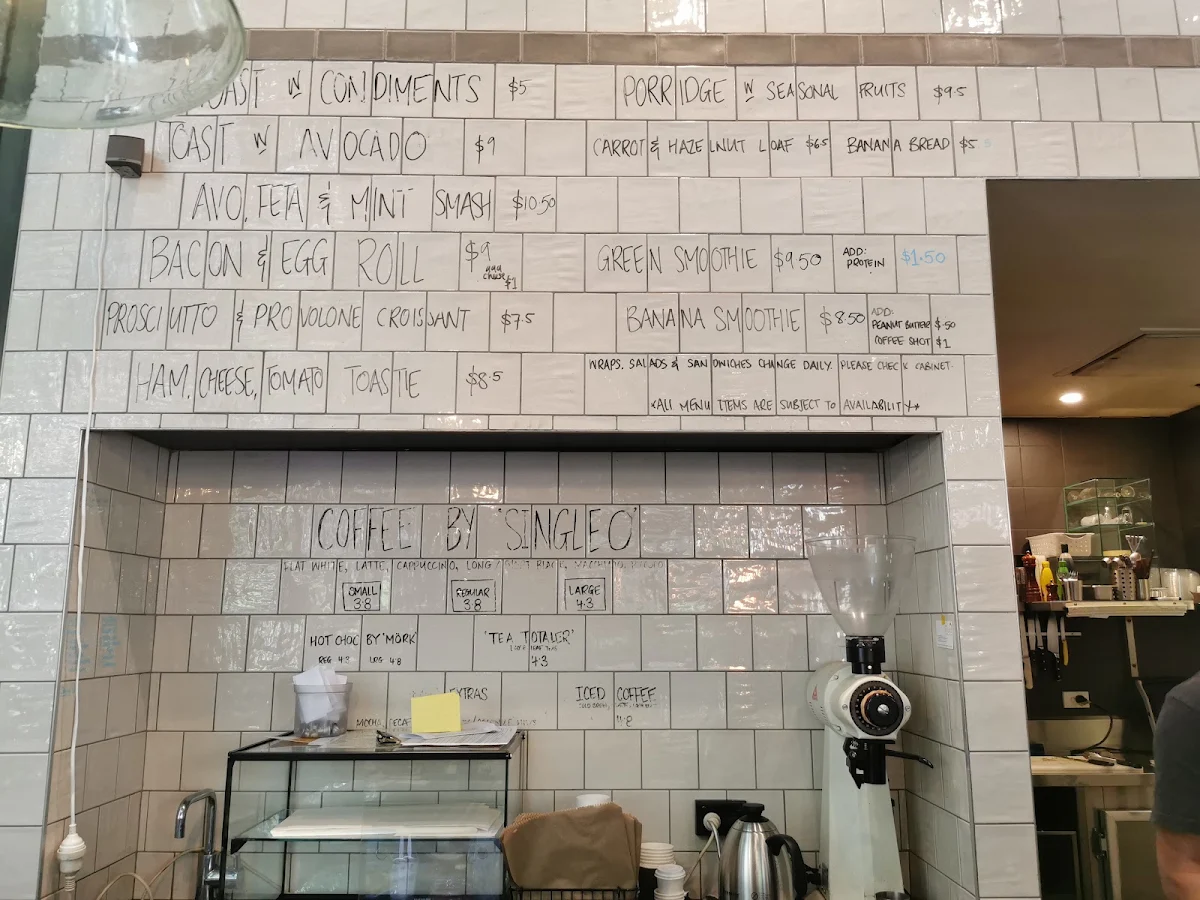 TOAST W CONDIMENTS $5
TOAST W AVOCADO $9
AVO, FETA & MINT SMASH $10.50
BACON & EGG ROLL $9
$1
PROSCIUTTO & PROVOLONE CROISSANT $7.5
HAM, CHEESE, TOMATO TOASTIE $8.5
PORRIDGE W SEASONAL FRUITS $9.5
CARROT & HAZELNUT LOAF $6.5 BANANA BREAD $5
GREEN SMOOTHIE $9.50 ADD: PROTEIN $1.50
BANANA SMOOTHIE $8.50 ADD:
PEANUT BUTTER $.50
COFFEE SHOT $1
WRAPS, SALADS & SANDWICHES CHANGE DAILY. PLEASE CHECK CABINET.
*ALL MENU ITEMS ARE SUBJECT TO AVAILABILITY*
COFFEE BY 'SINGLE O'
FLAT WHITE, LATTE, CAPPUCCINO, LONG BLACK, MACCHIATO,
SMALL 3.8
REGULAR 3.8
LARGE 4.3
HOT CHOC BY 'MORK'
REG 4.3 LRG 4.8
'TEA TOTALER'
4.3
EXTRAS
MOCHA, DECAF
ICED COFFEE